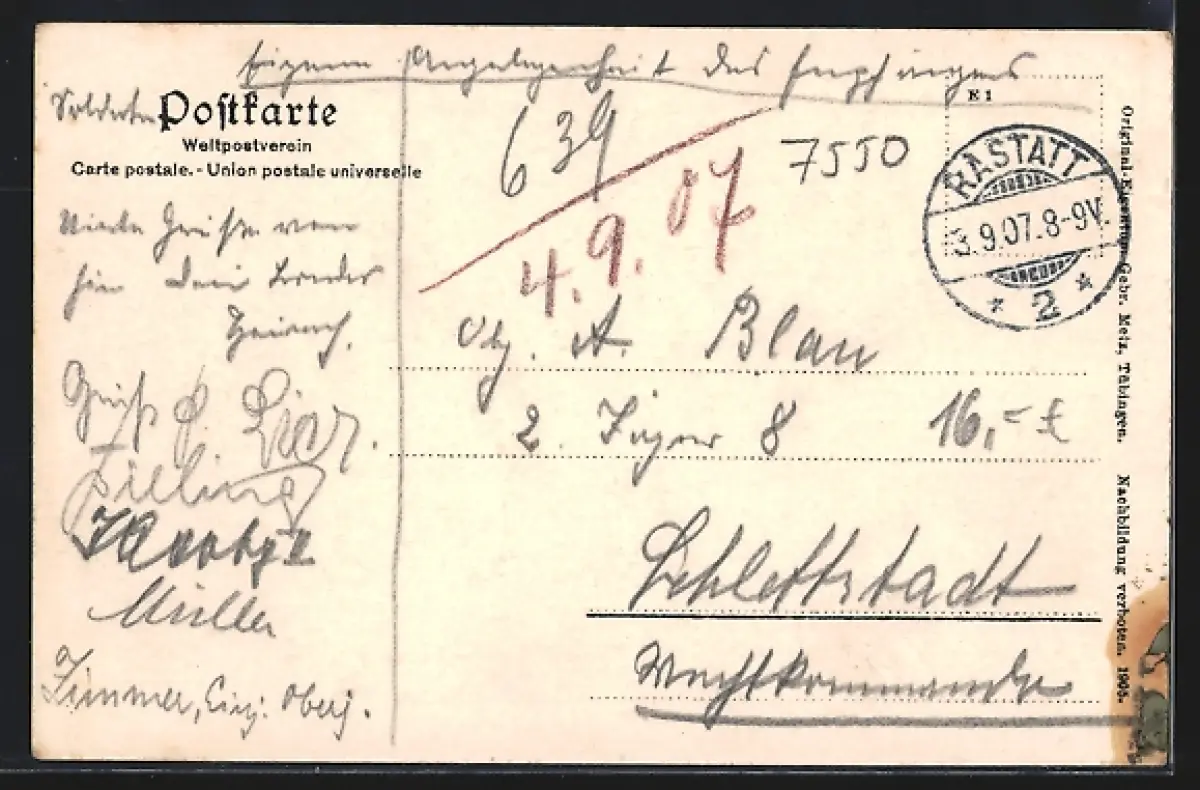 Eigene Angelegenheit des Empfängers
Soldaten Postkarte
Weltpostverein
Carte postale. - Union postale universelle
E 1
639
7550
4.9.07
RASTATT
3.9.07.8-9V.
* 2 *
Viele Grüße von
hier Dein Bruder
Heinrich.
Gruß
Müller
Zimmer, Einj. Oberj.
Obj. A. Blau
2. Jäger 8
16,-
Schlettstadt
Wachtkommando
Original-Eigentum Gebr. Metz, Tübingen. Nachbildung verboten. 1905.